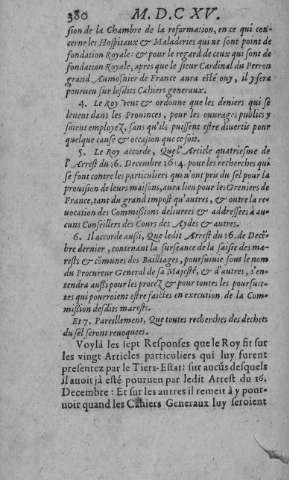 380 M. D. C XV.
sion de la Chambre de la reformation, en ce qui con-
cerne les Hospitaux & Maladeries qui ne sont point de
fondation Royale: & pour le regard de ceux qui sont de
fondation Royale, apres que le sieur Cardinal du Perron
grand Aumosnier de France aura esté ouy, il y sera
pourueu sur lesdits Cahiers generaux.
4. Le Roy veut & ordonne que les deniers qui se
leuent dans les Prouinces, pour les ouurages publics y
soient employez, sans qu'ils puissent estre diuertis pour
quelque cause & occasion que ce soit.
5. Le Roy accorde, Que l'Article quatriesme de
l'Arrest du 16. Decembre 1614. pour les recherches qui
se font contre les particuliers qui n'ont pris du sel pour la
prouision de leurs maisons, aura lieu pour les Greniers de
France, tant du grand impost qu'autres, & outre la re-
uocation des Commissions deliurees & addressees à au-
cuns Conseillers des Cours des Aydes & autres.
6. Il accorde aussi, Que ledit Arrest du 16. de Decē-
bre dernier, contenant la surseance de la saisie des ma-
rests & cōmunes des Bailliages, poursuiuie sous le nom
du Procureur General de sa Majesté, & d'autres, s'en-
tendra aussi pour les procez & pour toutes les poursuit-
tes qui pourroient estre faites en execution de la Com-
mission desdits marests.
Et 7. Pareillement, Que toutes recherches des dechets
du sel seront reuoquees.
Voylà les sept Responses que le Roy fit sur
les vingt Articles particuliers qui luy furent
presentez par le Tiers-Estat: sur aucūs desquels
il auoit jà esté pourueu par ledit Arrest du 16.
Decembre: Et sur les autres il remeit à y pour-
uoir quand les Cahiers Generaux luy seroient